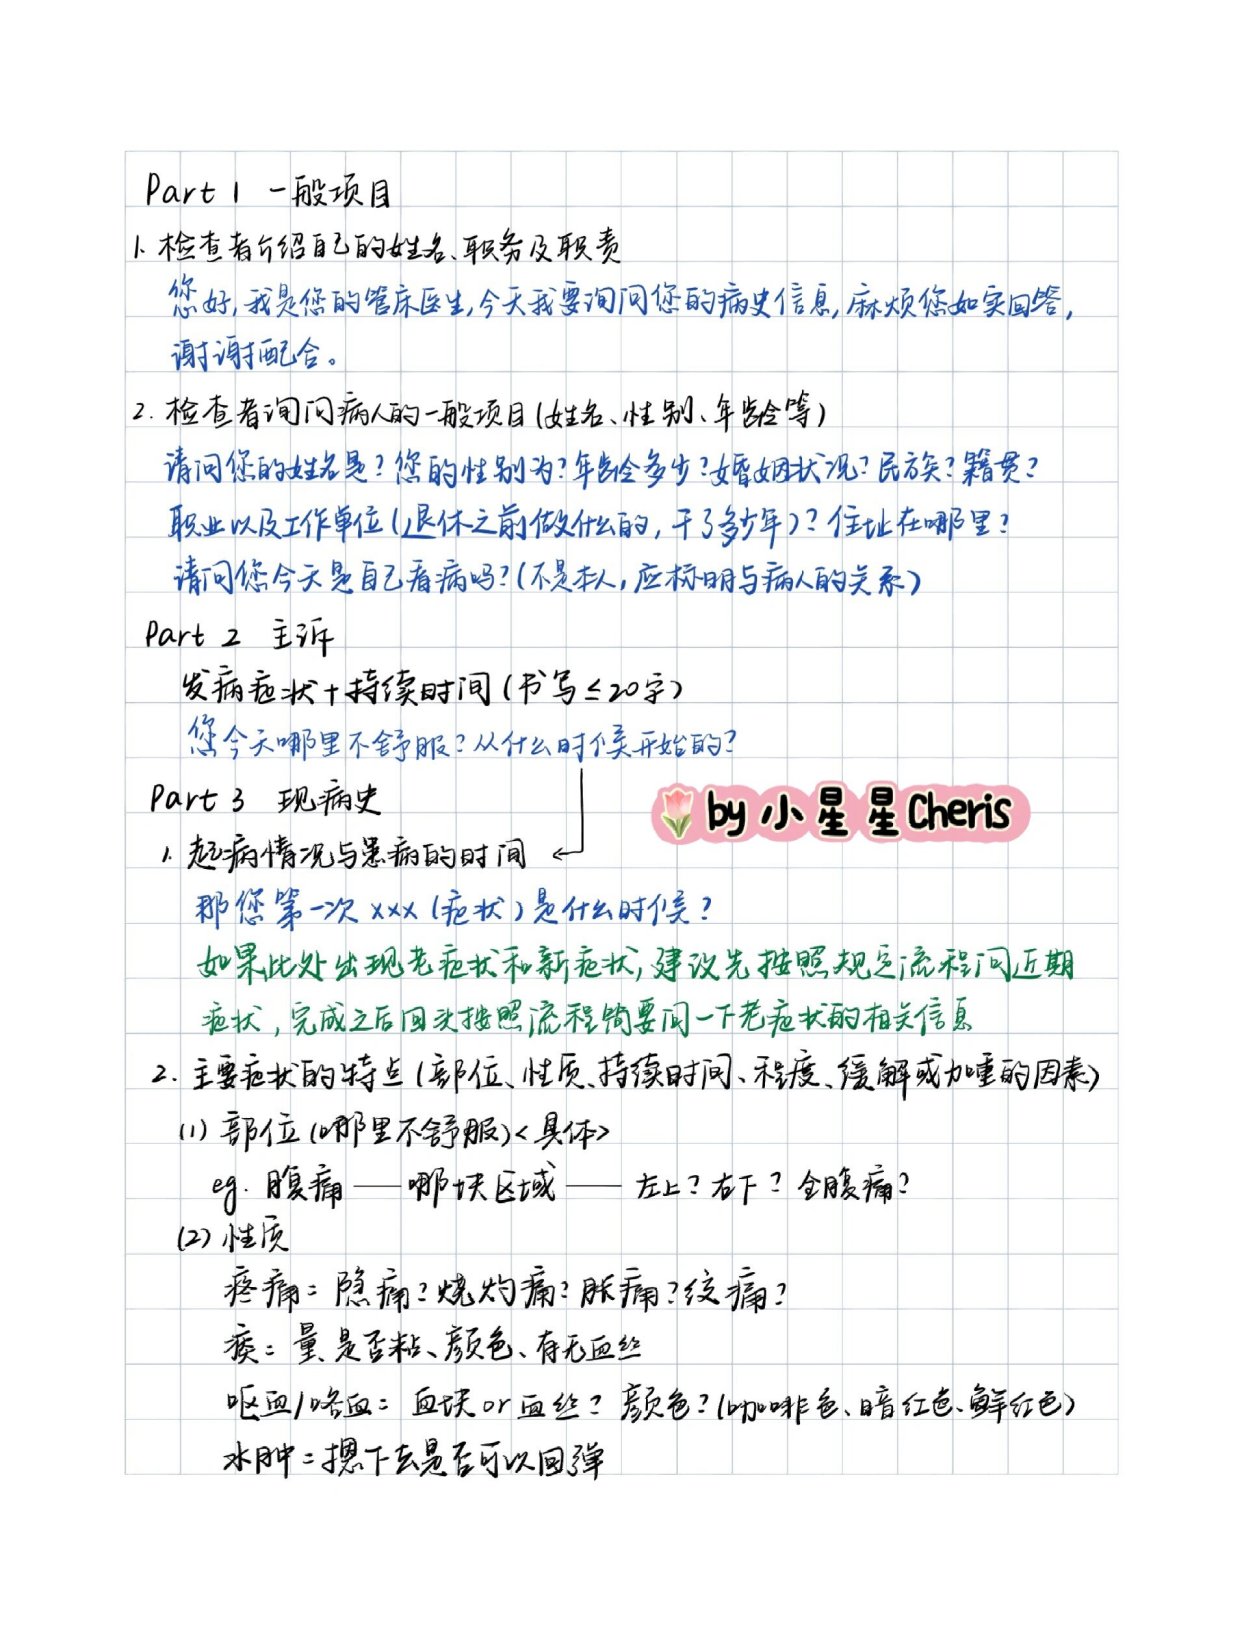 Part 1 一般项目
1. 检查者介绍自己的姓名、职务及职责
您好,我是您的管床医生,今天我要询问您的病史信息,麻烦您如实回答,
谢谢配合。
2. 检查者询问病人的一般项目(姓名、性别、年龄等)
请问您的姓名是?您的性别为?年龄多少?婚姻状况?民族?籍贯?
职业以及工作单位(退休之前做什么的,干了多少年)?住址在哪里?
请问您今天是自己看病吗?(不是本人,应标明与病人的关系)
Part 2 主诉
发病症状+持续时间(书写≤20字)
您今天哪里不舒服?从什么时候开始的?
Part 3 现病史
by 小星星Cheris
1. 起病情况与患病的时间
那您第一次xxx(症状)是什么时候?
如果此处出现老症状和新症状,建议先按照规定流程问近期
症状,完成之后回头按照流程简要问一下老症状的相关信息
2. 主要症状的特点(部位、性质、持续时间、程度、缓解或加重的因素)
(1) 部位(哪里不舒服)<具体>
eg. 腹痛——哪块区域——左上?右下?全腹痛?
(2) 性质
疼痛:隐痛?烧灼痛?胀痛?绞痛?
痰:量、是否粘、颜色、有无血丝
呕血/咯血:血块or血丝?颜色?(咖啡色、暗红色、鲜红色)
水肿:摁下去是否可以回弹